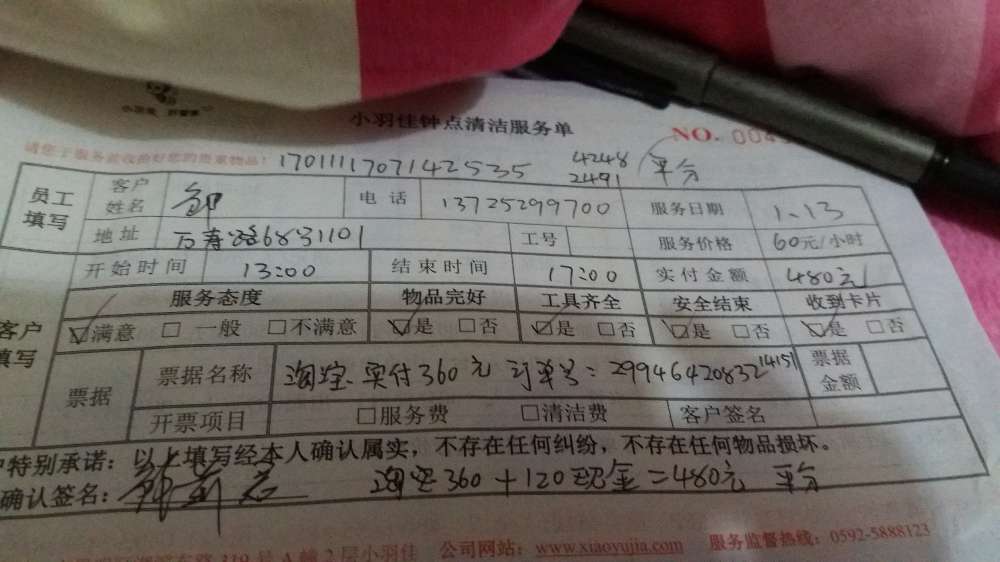 小羽佳 好管家
小羽佳钟点清洁服务单
NO. 004
请您于服务前收拾好您的贵重物品！ 17011117071425535 4248 2491 平分
员工填写 客户姓名 邹 电话 13725299700 服务日期 1.13
地址 万寿路6831101 工号 服务价格 60元/小时
开始时间 13:00 结束时间 17:00 实付金额 480元
客户填写 服务态度 物品完好 工具齐全 安全结束 收到卡片
☑满意 □一般 □不满意 ☑是 □否 ☑是 □否 ☑是 □否 ☑是 □否
票据 票据名称 淘宝实付360元 订单号：2994642083214151 票据金额
开票项目 □服务费 □清洁费 客户签名
户特别承诺：以上填写经本人确认属实，不存在任何纠纷，不存在任何物品损坏。
确认签名： 淘宝360+120现金=480元 平分
路319号A幢2层小羽佳 公司网站：www.xiaoyujia.com 服务监督热线：0592-5888123